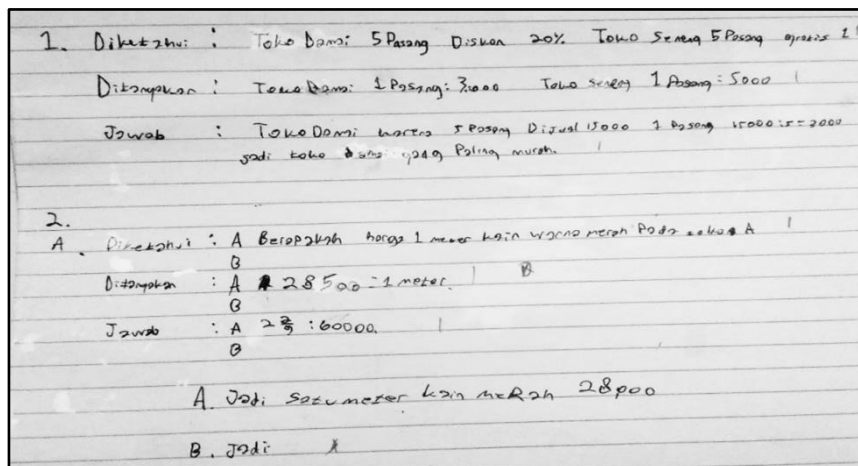 1. Diketahui : Toko Dami 5 Pasang Diskon 20% Toko Seneng 5 Pasang gratis 1
Ditanyakan : Toko Dami 1 Pasang: 3.000 Toko Seneng 1 Pasang = 5000
Jawab : Toko Dami karena 5 Pasang Dijual 15000 1 Pasang 15000:5=3000
jadi toko yang Paling murah.
2.
A. Diketahui : A Berapakah harga 1 meter kain warna merah Pada A
B
Ditanyakan : A 28500 = 1 meter.
B
Jawab : A : 60000.
B
A. Jadi satu meter kain meRah 28,000
B. Jadi